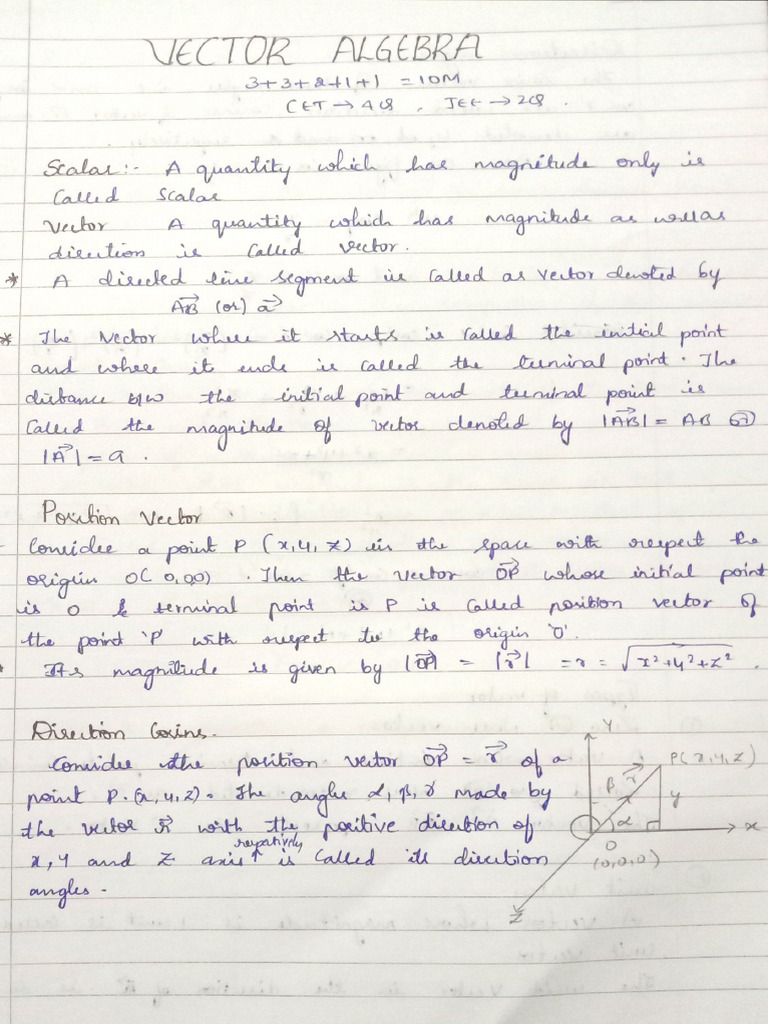 VECTOR ALGEBRA
3+3+2+1+1 = 10M
CET → 4Q , JEE → 2Q .
Scalar :- A quantity which has magnitude only is
Called Scalar
Vector A quantity which has magnitude as wellas
direction is Called vector.
* A directed line segment is Called as vector denoted by
A⃗B⃗ (or) a⃗
* The Vector where it starts is Called the initial point
and where it ends is Called the terminal point. The
distance b/w the initial point and terminal point is
Called the magnitude of vector denoted by |A⃗B⃗| = AB or
|A⃗| = a .
Position Vector
Consider a point P (x,y,z) in the space with respect the
origin O( 0,0,0) . Then the vector O⃗P⃗ whose initial point
is O & terminal point is P is called position vector of
the point 'P' with respect to the origin 'O'.
Its magnitude is given by |O⃗P⃗| = |r⃗| = r = √x²+y²+z² .
Direction Cosins.
Consider the position vector O⃗P⃗ = r⃗ of a
point P.(x,y,z). The angles α, β, γ made by
the vector r⃗ with the positive direction of
respatively
x, y and z axis ↑ is Called its direction
angles.
Y
P(x,y,z)
β r⃗
y
α
x
O
(0,0,0)
Z